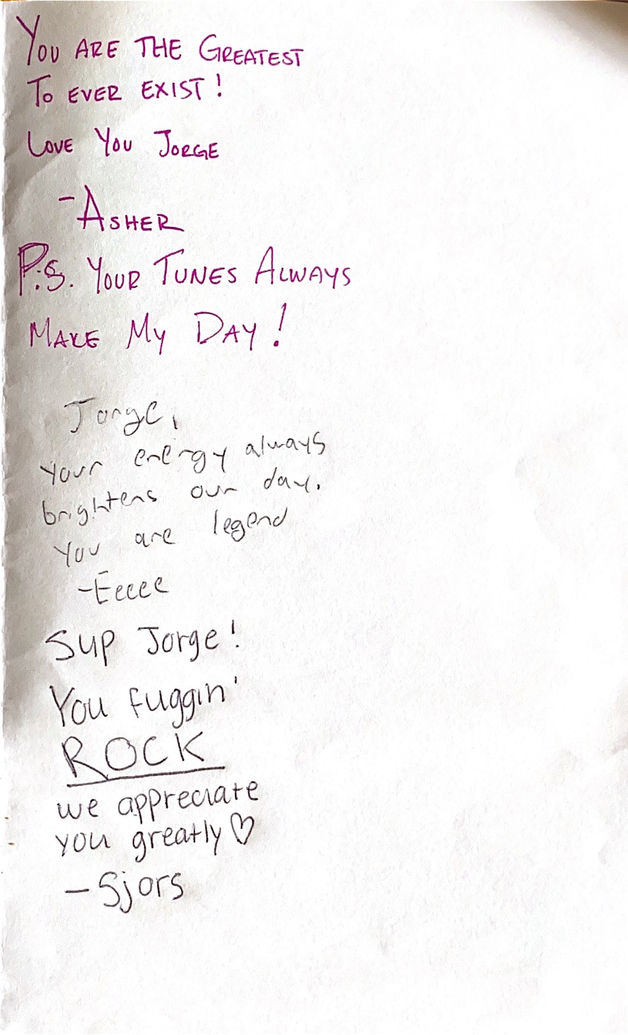 YOU ARE THE GREATEST
TO EVER EXIST!
LOVE YOU JORGE
-ASHER
P.S. YOUR TUNES ALWAYS
MAKE MY DAY!
Jorge,
Your energy always
brightens our day.
You are legend
-Eeeee
Sup Jorge!
You fuggin'
ROCK
we appreciate
you greatly ♡
-Sjors